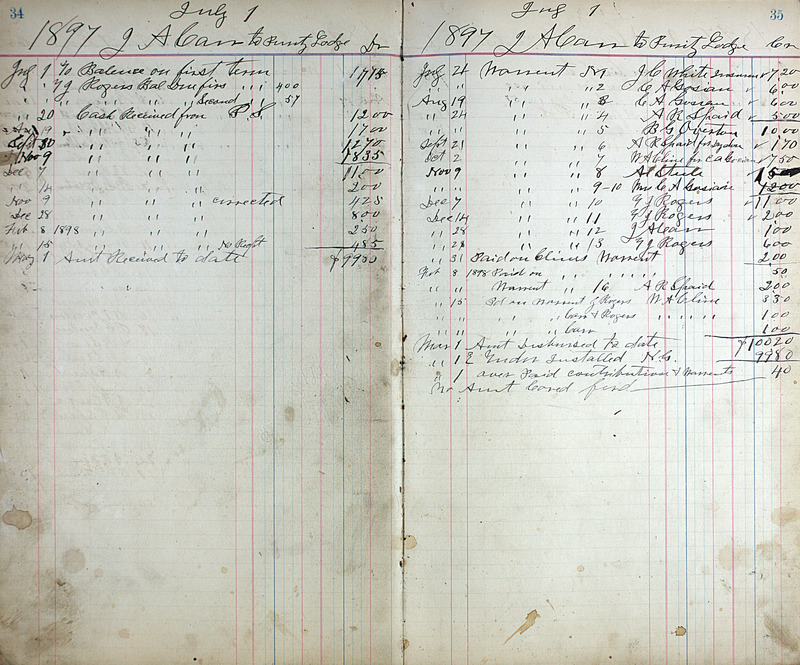 34
July 1
1897 J A Carr to Purity Lodge Dr
July 1 To Balance on first term 1775
" " " J Rogers Bal Due firs " " 400
" " " " " " Second " " 57
" 20 Cash Received from P. S. 1200
" " " " 1700
Sept 30 " " " 1270
Nov 9 " " " 1835
Dec 7 " " " 1100
" 14 " " " 200
Nov 9 " " " corrected 425
Dec 28 " " " 800
Feb 8 1898 " " " 250
" 15 " " " No Recpt 485
May 1 Amt Received to date $9980
35
July 1
1897 J A Carr to Purity Lodge Cr
July 21 Warrent No 1 J. C. White 720
" " " " 2 C A Gosian 600
Aug 19 " " 3 C A Gosian 600
" 24 " " 4 A R Spaid 500
" " " " 5 B G Overton 1000
Sept 21 " " 6 A R Spaid for 170
Oct 2 " " 7 W A Cline for C A Gosian 750
Nov 9 " " 8 A Steele 150
" " " " 9-10 Mr C A Gosian 1200
Dec 7 " " 10 G J Rogers 1100
Dec 14 " " 11 G J Rogers 200
" 28 " " 12 J A Carr 100
" 28 " " 13 G J Rogers 600
" 31 Paid on Clines Warrent 200
Feb 8 1898 Paid on " " " " " 50
" " Warrent " 16 A R Spaid 200
" 15 Pd on Warrent J Rogers W A Cline 330
" " " " Carr & Rogers " " " " 100
" " " " Carr 100
Mar 1 Amt Disbursed to date $10020
" 1 Installed N. G. 9980
" 1 over Paid contribution & Warrents 40
No Amt